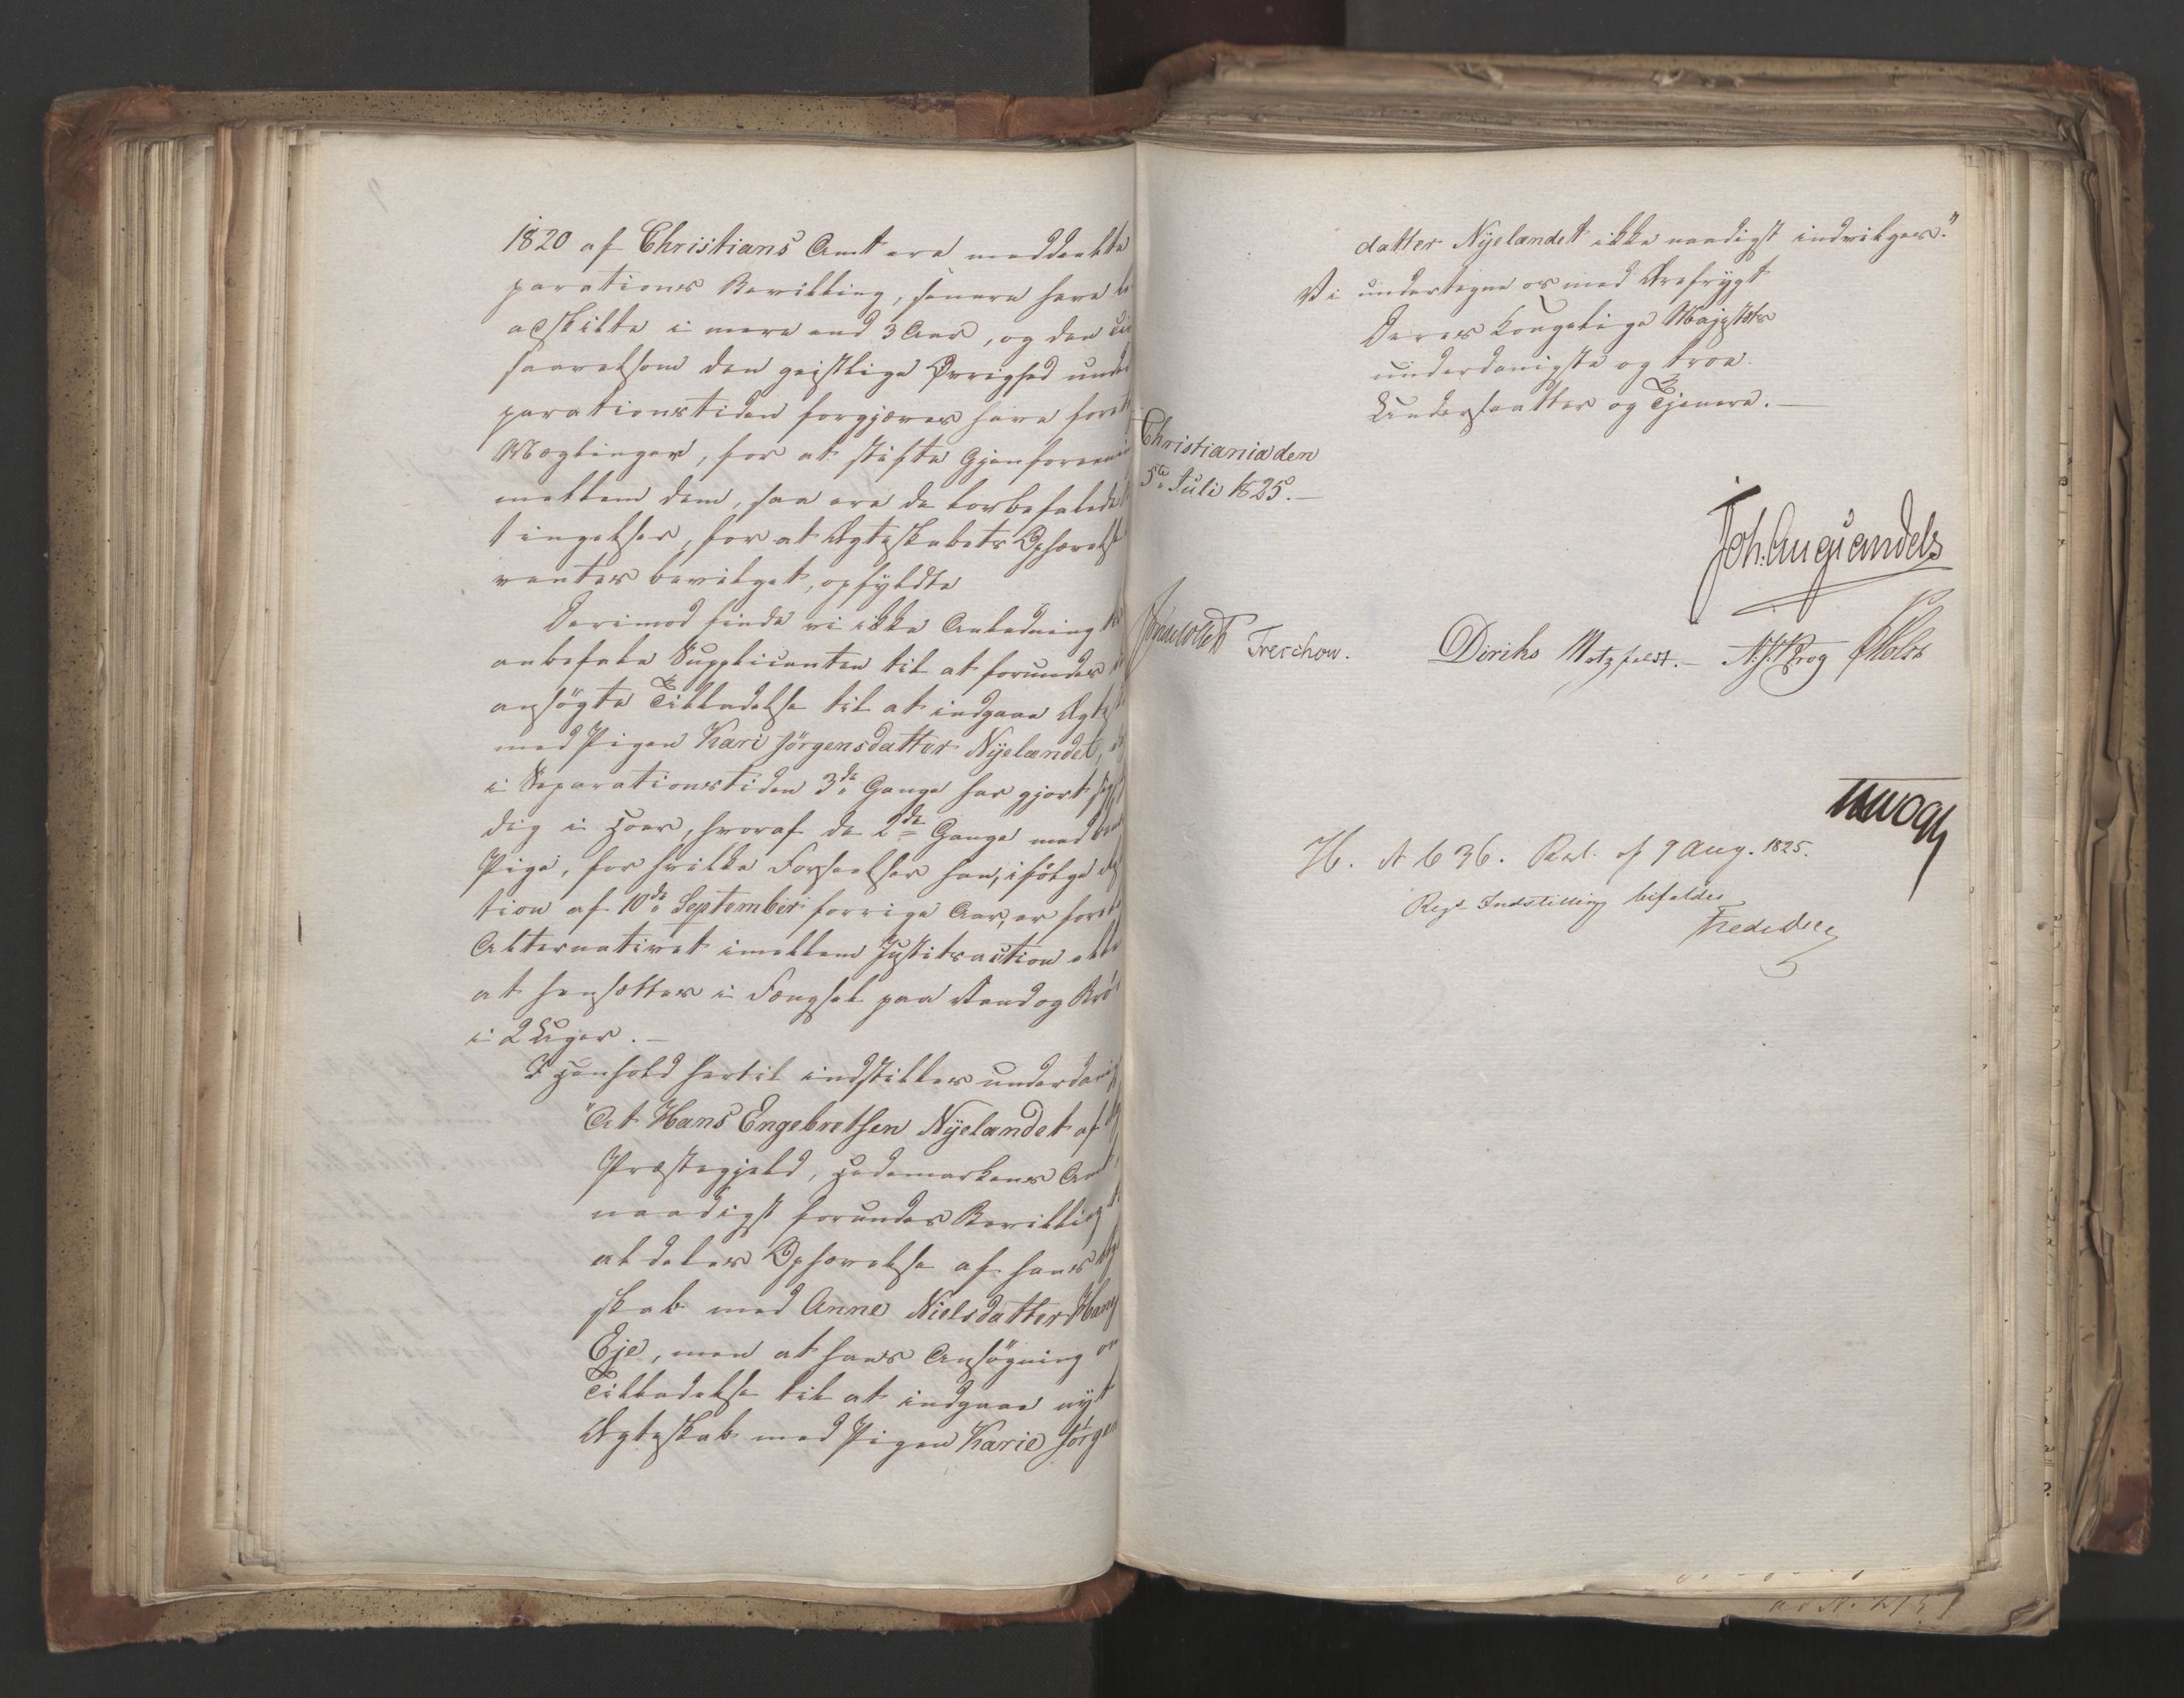 1820 af Christians Amt ere meddeelte
parations Bevilling, senere have
adskilte i mere end 3 Aar, og den
saavelsom den geistlige Øvrighed under
parationstiden forgjæves have
Mæglinger, for at stifte Gjenforening
mellem dem, saa ere de lovbefalede
tingelser, for at Ægteskabets Ophævelse
ventes bevilget, opfyldte
Derimod finde vi ikke Anledning til
anbefale Supplicanten til at forundes
ansögte Tilladelse til at indgaae
med Pigen Kari Jörgensdatter Nÿelandet,
i Separationstiden 3de Gange har gjort sig
dig i Hoer, hvoraf de 2de Gange med
Pige, for hvilke Forseelser han, ifölge
tion af 10de September forrige Aar, er
Alternativet imellem Justitsaction eller
at hensættes i Fængsel paa Vand og Bröd
i 2 Uger. —
I Henhold hertil indstilles underdanigst
"At Hans Engebretsen Nÿelandet af
Præstegjeld, Hedemarkens Amt,
naadigst forundes Bevilling
aldeles Ophævelse af hans
skab med Anne Nielsdatter
Eje, men at hans Ansögning om
Tilladelse til at indgaae nyt
Ægteskab med Pigen Karie Jörgens
datter Nÿelandet ikke naadigst indvilges."
Vi undertegne os med Ærefrygt
Deres Kongelige Majestæts
underdanigste og troe
Undersaatter og Tjenere. —
Christiania den
5te Juli 1825. —
Joh. Aug. Sandels
Treschow. Diriks Motzfeldt. — N. J. Krog Holst
H. № 636. Resl. af 9 Aug. 1825.
Regs Indstilling bifaldes